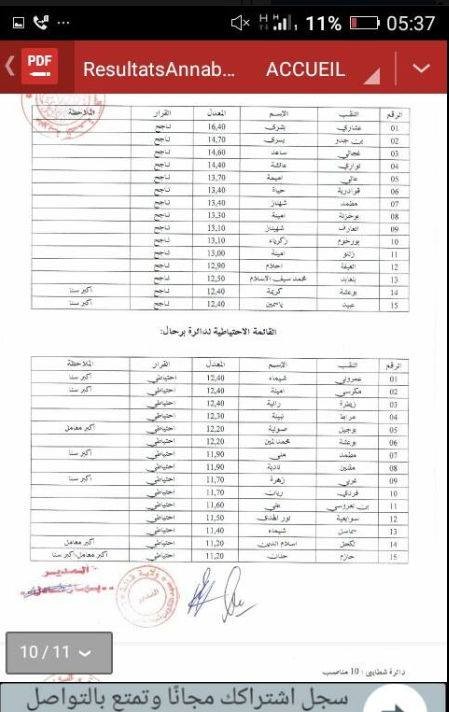 11% 05:37
PDF ResultatsAnnab... ACCUEIL
الرقم اللقب الإسم المعدل القرار الملاحظة
01 عشاري بشرى 16,40 ناجح
02 بن جدو يسرى 14,70 ناجح
03 عجالي ساعد 14,60 ناجح
04 نواري عائشة 14,40 ناجح
05 عالي اميمة 13,70 ناجح
06 قوادرية حياة 13,40 ناجح
07 محمد شهيناز 13,40 ناجح
08 بوخزنة امينة 13,30 ناجح
09 شهيناز 13,10 ناجح
10 بورخوم زكرياء 13,10 ناجح
11 زنتو امينة 13,00 ناجح
12 العيفة احلام 12,90 ناجح
13 بلعابد محمد سيف الاسلام 12,50 ناجح
14 بوعشة كريمة 12,40 ناجح أكبر سنا
15 عبيد ياسمين 12,40 ناجح أكبر سنا
القائمة الاحتياطية لدائرة برحال:
الرقم اللقب الإسم المعدل القرار الملاحظة
01 عمروني شيماء 12,40 احتياطي أكبر سنا
02 مكرسي امينة 12,40 احتياطي أكبر سنا
03 رانية 12,40 احتياطي
04 مرابط لبينة 12,30 احتياطي
05 بوجبل صونية 12,20 احتياطي أكبر معامل
06 بوعشة محمد لمين 12,20 احتياطي
07 محمد علي 11,90 احتياطي أكبر سنا
08 مقلين نادية 11,90 احتياطي
09 غربي زهرة 11,70 احتياطي أكبر سنا
10 فردي ريان 11,70 احتياطي
11 بن لعروسي علي 11,60 احتياطي
12 سوايعية نور الهدى 11,50 احتياطي
13 شيماء 11,40 احتياطي
14 لكحل اسلام الدين 11,20 احتياطي أكبر معامل
15 حازم حنان 11,20 احتياطي أكبر معامل،أكبر سنا
المدير
10 / 11
دائرة شطايبي : 10 مناصب
سجل اشتراكك مجانًا وتمتع بالتواصل